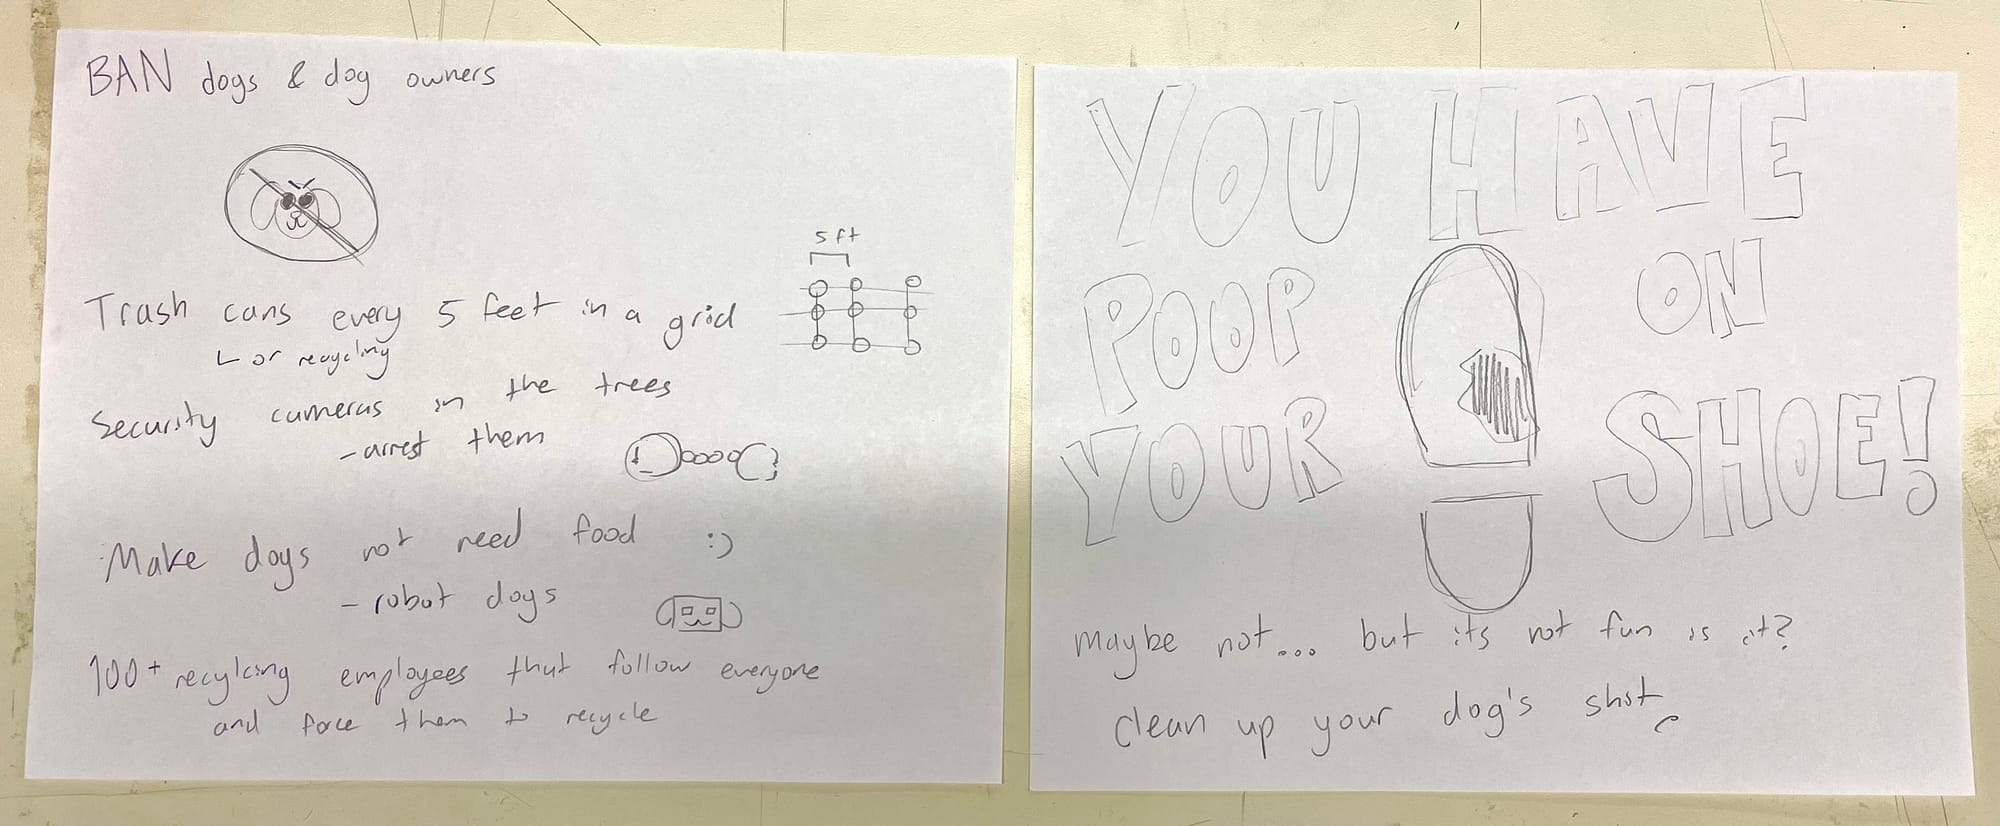 BAN dogs & dog owners
5 ft
Trash cans every 5 feet in a grid
or recycling
Security cameras in the trees
- arrest them
Make dogs not need food :)
- robot dogs
100+ recylcing employees that follow everyone
and force them to recycle
YOU HAVE
POOP ON
YOUR SHOE!
Maybe not... but its not fun is it?
Clean up your dog's shit